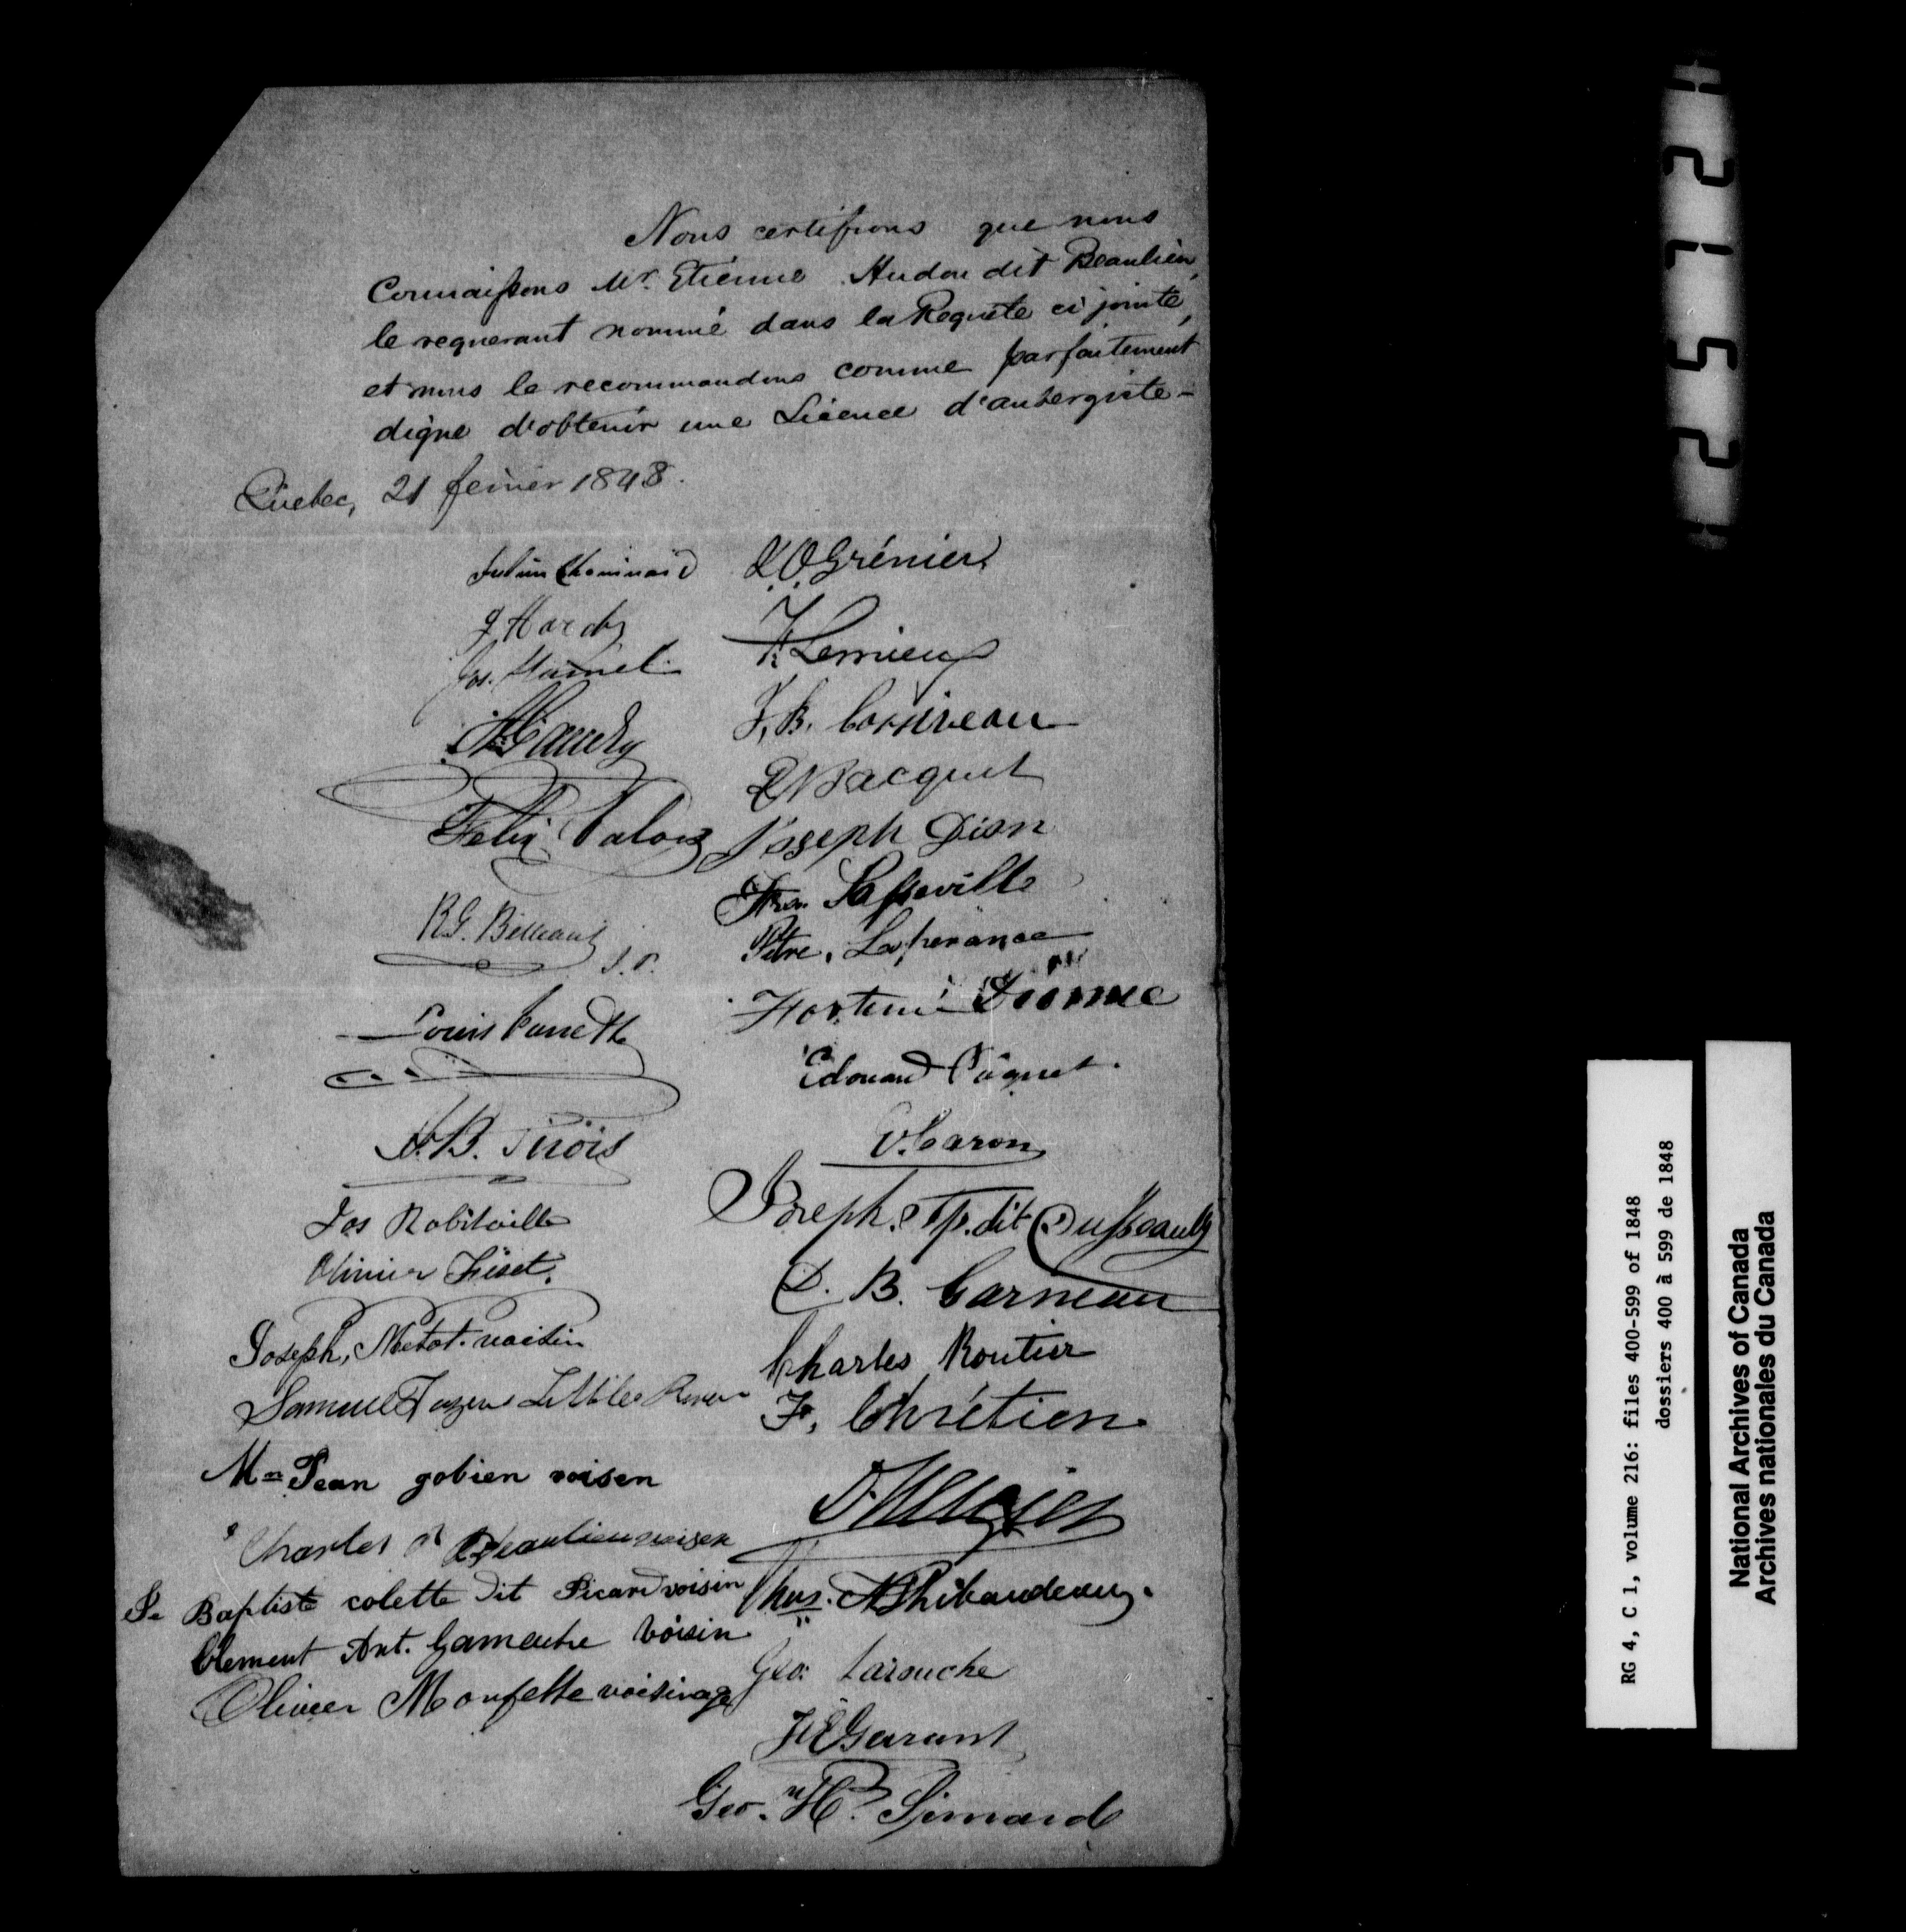 Nous certifions que nous
Connaissons Mr. Etienne Hudon dit Beaulieu,
le requerant nommé dans la Requête ci jointe,
et nous le recommandons comme parfaitement
digne d'obtenir une Licence d'aubergiste -
Québec, 21 fevrier 1848.
Julien Chouinard
J Hardy
Jos. Hamel
Felix Valois
R.G. Belleau
J.P.
Louis
Jos Robitaille
Olivier Fiset.
Joseph, Metot. voisin
Samuel Little River
Mr Jean gobien voisen
Charles Beaulieu voisen
Je Baptiste colette dit Picard voisin
Clement Ant. Gamache voisin
Olivier Moufette voisinage
Grénier
F. Lemieux
J, B. Corriveau
Pacquet
Joseph Dion
Fran Lasseville
Petre, Lasperance
Dionne
Edouard Pâquet.
V. Caron
Joseph. dit Dusseault
B. Garneau
Charles Routier
F, Chrétien
Thibaudeau.
Geo: Larouche
Garant
Geo. H. Simard
21752
RG 4, C 1, volume 216: files 400-599 of 1848
dossiers 400 à 599 de 1848
National Archives of Canada
Archives nationales du Canada